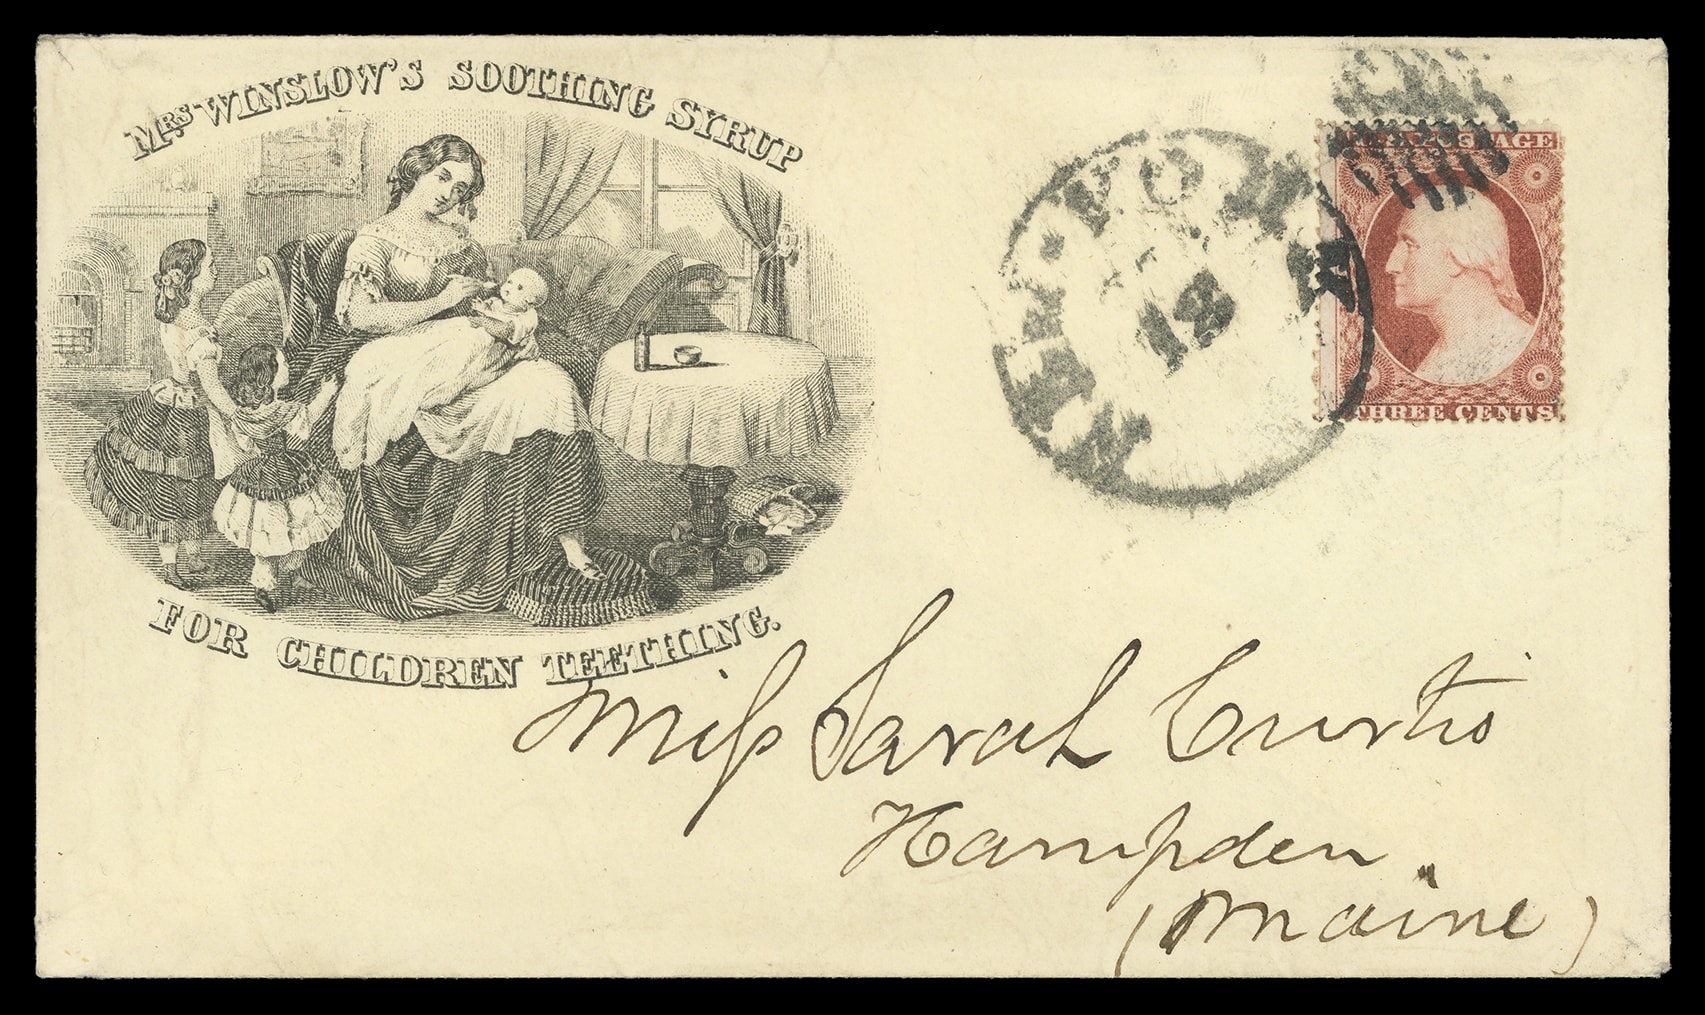 MRS WINSLOW'S SOOTHING SYRUP
FOR CHILDREN TEETHING.
NEW-YORK
18
U.S. POSTAGE
THREE CENTS
Miss Sarah Curtis
Hampden
(Maine)